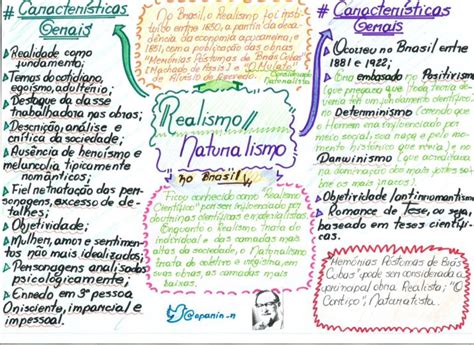 # Características
Gerais
Realidade como
fundamento;
Temas do cotidiano,
egoísmo, adultério,
Destaque da classe
trabalhadora nas obras;
Descrição, análise e
crítica da sociedade;
Ausência de heroísmo e
melancolia tipicamente
românticos;
Fiel retratação das per-
sonagens, excesso de de-
talhes;
Objetividade;
Mulher, amor e sentimen-
tos não mais idealizados;
Personagens analisados
psicologicamente;
Enredo em 3ª pessoa
Onisciente, imparcial e
impessoal.
No Brasil, o Realismo foi insti-
tuído entre 1850, a partir da deca-
dência da economia açucareira, e
1881, com a publicação das obras
"Memórias Póstumas de Brás Cubas"
(Machado de Assis) e "O Mulato"
Aluísio de Azevedo.
Considerado
Naturalista
Realismo//
Naturalismo
no Brasil
Ficou conhecido como "Realismo
Científico" por ser influenciado por
doutrinas científicas e materialistas.
Enquanto o Realismo trata do
individual e das camadas mais
altas da sociedade, o Naturalismo
trata do coletivo e registra, em
suas obras, as camadas mais
baixas.
@apanin_n
# Características
Gerais
Ocorreu no Brasil entre
1881 e 1922;
Era embasado no Positivismo
(que pregava que toda teoria de-
veria ter um fundamento científico),
no Determinismo (onde o
Homem era influenciado por
meio social, sua raça e pelo mo-
mento histórico que vivia) e no
Darwinismo (que acreditava
na dominação dos mais fortes
sobre os mais fracos).
Objetividade (antirromantismo)
Romance de Tese, ou seja,
baseado em teses científi-
cas.
Memórias Póstumas de Brás
Cubas" pode ser considerada a
principal obra Realista; "O
Cortiço", Naturalista.